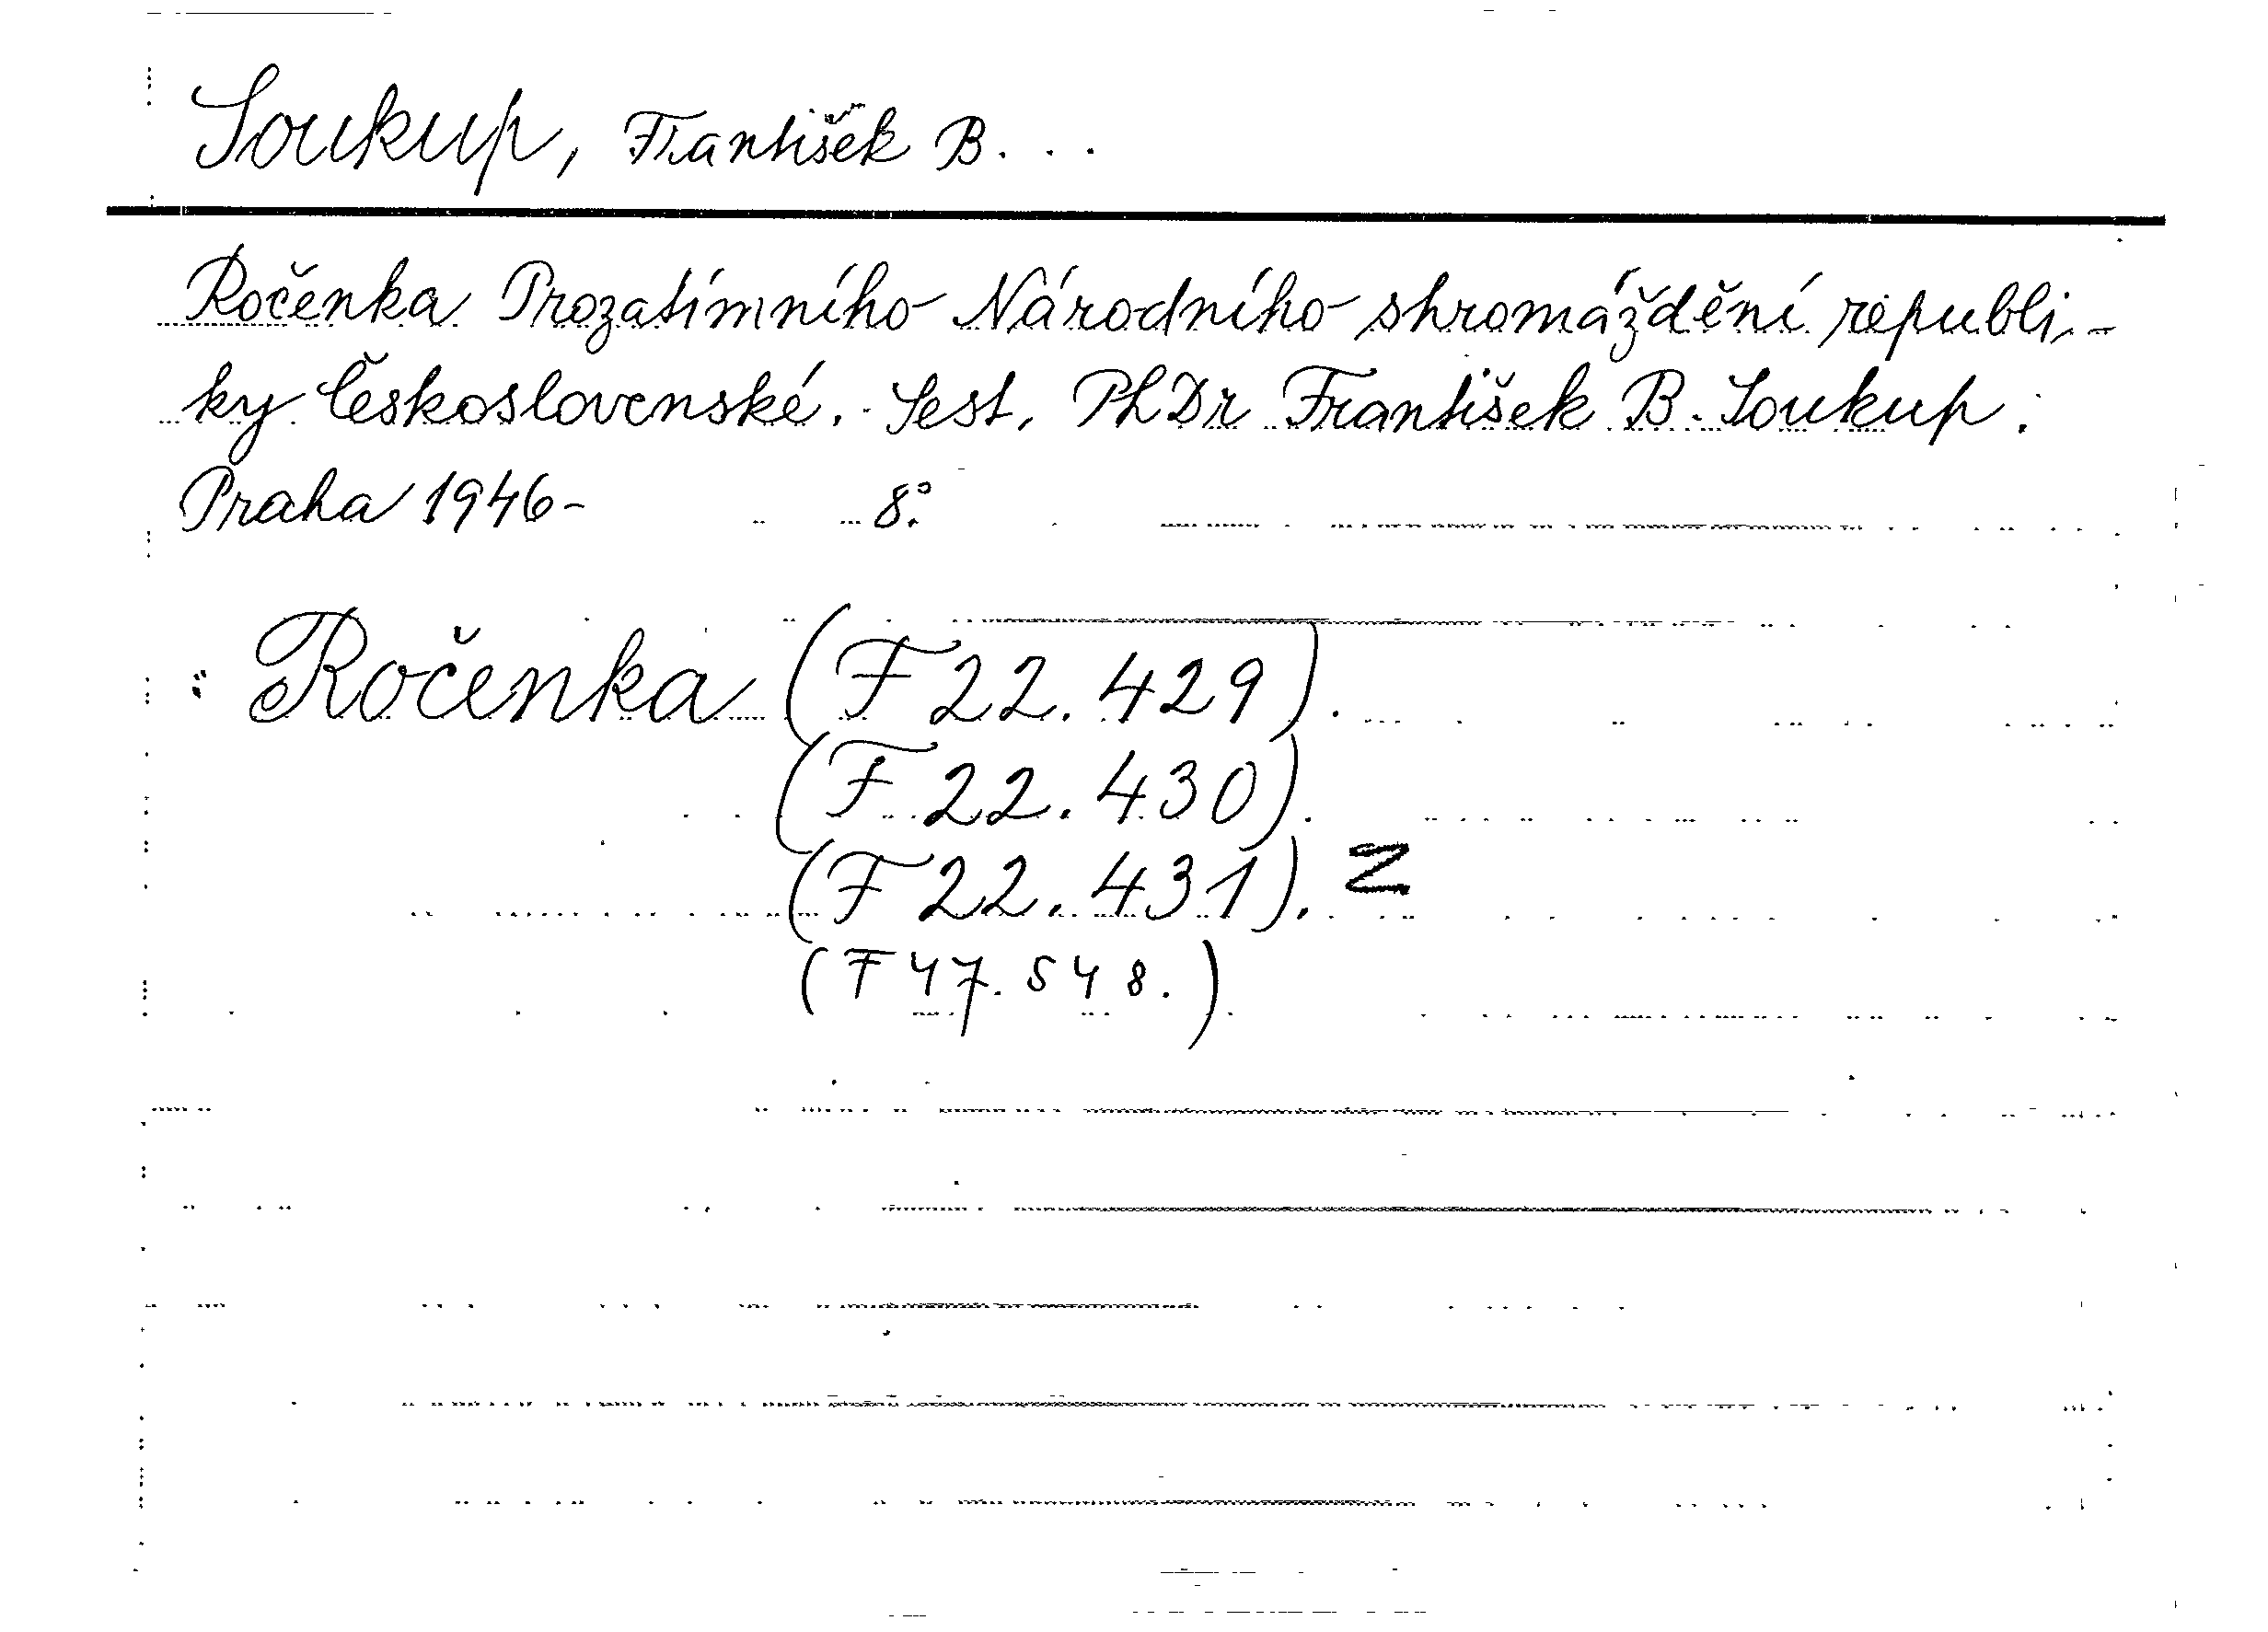 Soukup, František B...
Ročenka Prozatímního Národního shromáždění republi-
ky Československé. Sest. PhDr František B. Soukup.
Praha 1946- 8°.
: Ročenka (F 22.429).
(F 22.430).
(F 22.431). Z
(F 47.548.)